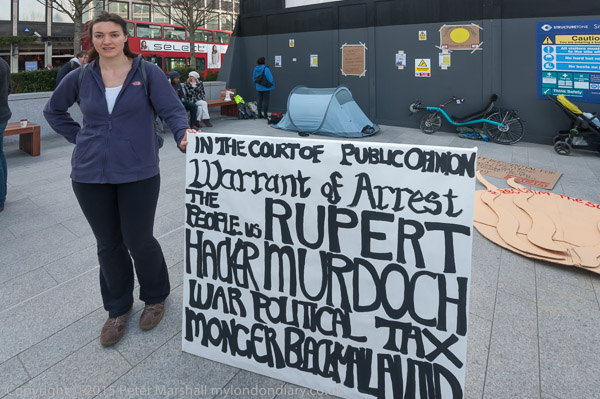 SELECT
STRUCTURETONE
Caution
IN THE COURT OF PUBLIC OPINION
Warrant of Arrest
THE
PEOPLE vs RUPERT
HACKER MURDOCH
WAR POLITICAL TAX
MONGER BLACKMAIL AVOID
Copyright © 2015 Peter Marshall mylondondiary.co